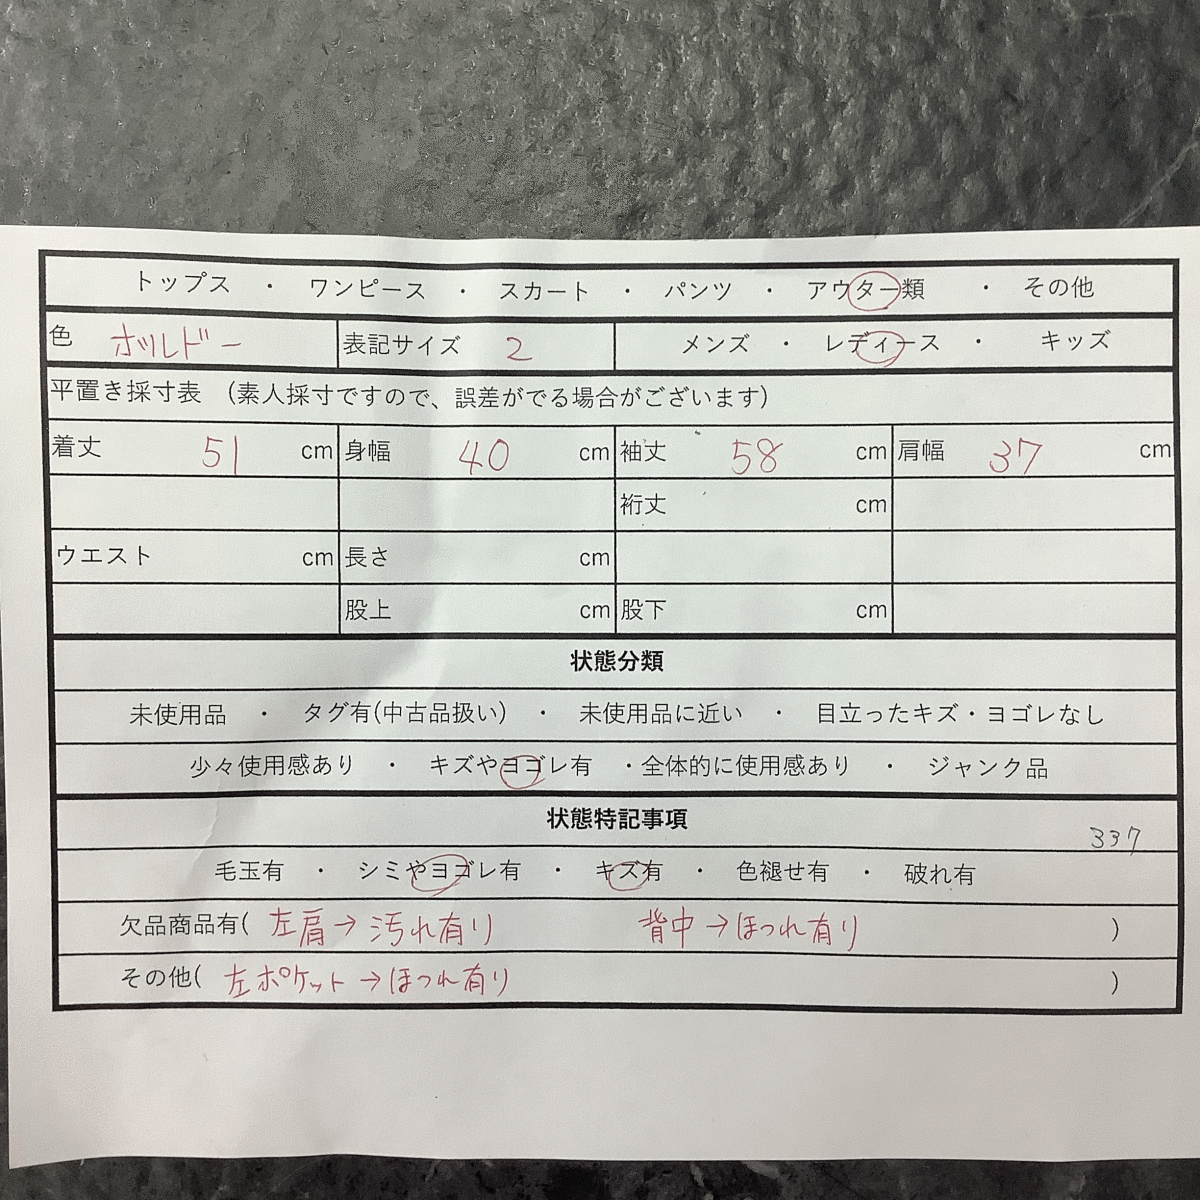 トップス ・ ワンピース ・ スカート ・ パンツ ・ アウター類 ・ その他
色 ボルドー 表記サイズ 2 メンズ ・ レディース ・ キッズ
平置き採寸表 (素人採寸ですので、誤差がでる場合がございます)
着丈 51 cm 身幅 40 cm 袖丈 58 cm 肩幅 37 cm
裄丈 cm
ウエスト cm 長さ cm
股上 cm 股下 cm
状態分類
未使用品 ・ タグ有(中古品扱い) ・ 未使用品に近い ・ 目立ったキズ・ヨゴレなし
少々使用感あり ・ キズやヨゴレ有 ・全体的に使用感あり ・ ジャンク品
状態特記事項
337
毛玉有 ・ シミやヨゴレ有 ・ キズ有 ・ 色褪せ有 ・ 破れ有
欠品商品有( 左肩→汚れ有り 背中→ほつれ有り )
その他( 左ポケット→ほつれ有り )